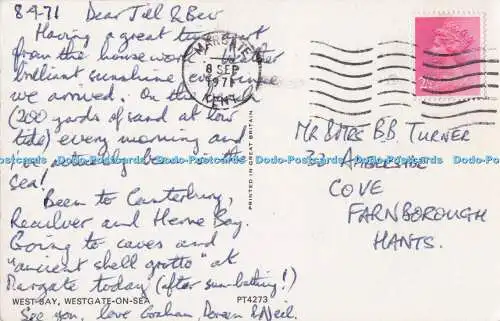 8-9-71 Dear Jill & Bev
Having a great time apart
from the housework. Weather
brilliant sunshine ever since
we arrived. On the beach
(200 yards of sand at low
tide) every morning and
I've actually been in the
sea!
Been to Canterbury,
Reculver and Herne Bay.
Going to caves and
"ancient shell grotto" at
Margate today (after sun-bathing!)
See you, love Graham, Doreen & Neil.
WEST BAY, WESTGATE-ON-SEA
PT4273
PRINTED IN GREAT BRITAIN
MARGATE
8 SEP
1971
KENT
MR & MRS B B TURNER
33 AMBLESIDE
COVE
FARNBOROUGH
HANTS.
Dodo-Postcards Dodo-Postcards Dodo-Postcards Dodo-Postcards